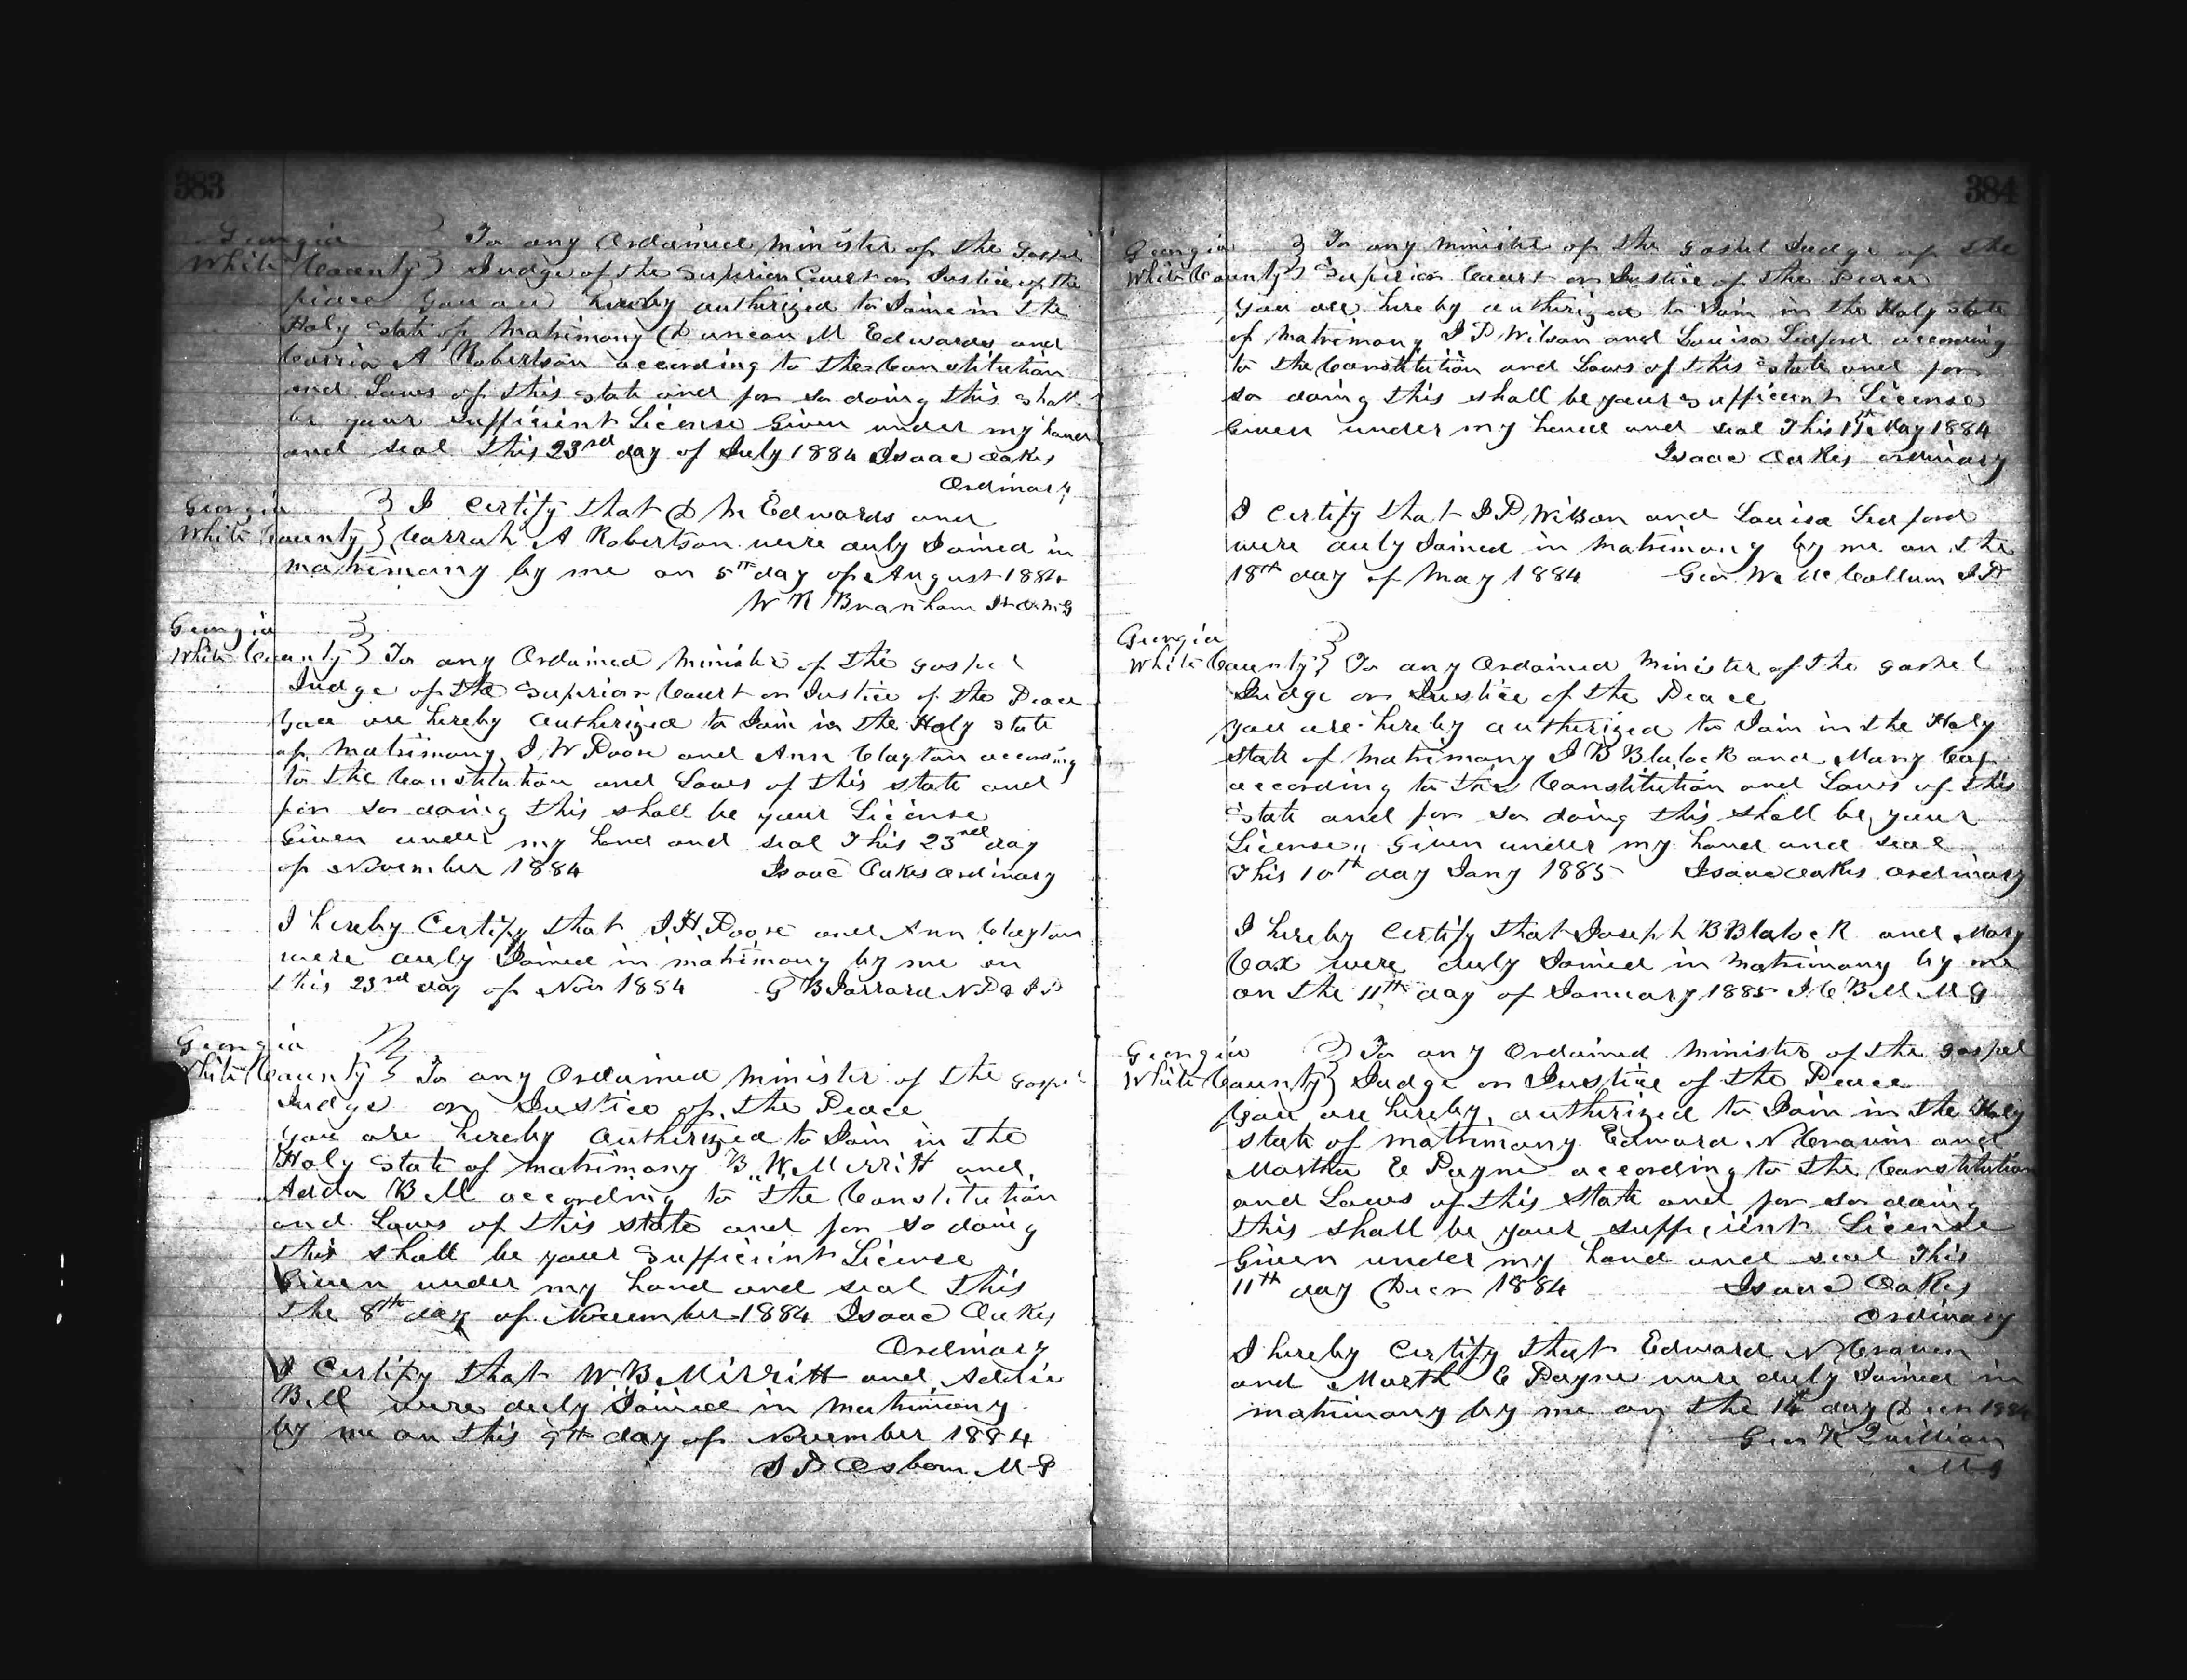 383
Georgia } To any Ordained minister of the Gospel
White County } Judge of the Superior Court or Justice of the
piece you are hereby authorized to Joine in the
Holy state of Matrimony Duncan M Edwards and
Carria A Robertson according to the Constitution
and Laws of this state and for so doing this shall
be your sufficient License Given under my hand
and seal this 23rd day of July 1884 Isaac Oakes
Ordinary
Georgia } I certify that D M Edwards and
White County } Carrah A Robertson were duly Joined in
matrimony by me on 5th day of August 1884
W R Branham
Georgia }
White County } To any Ordained Minister of the gospel
Judge of the Superior Court or Justice of the Peace
You are hereby authorized to Join in the Holy state
of Matrimony J W Poore and Ann Clayton according
to the Constitution and Laws of this state and
for so doing this shall be your License
Given under my hand and seal This 23rd day
of November 1884 Isaac Oakes Ordinary
I hereby Certify that J H Poore and Ann Clayton
were duly Joined in matrimony by me on
this 23rd day of Nov 1884 G B Jarrard N P & J P
Georgia }
White County } To any Ordained minister of the Gospel
Judge or Justice of the Peace
You are hereby Authorized to Join in the
Holy State of matrimony B W Merritt and
Adda Bell according to the Constitution
and Laws of this state and for so doing
this shall be your Sufficient License
Given under my hand and seal this
the 8th day of November 1884 Isaac Oakes
Ordinary
I Certify that W B Merritt and Addie
Bell were duly Joined in matrimony
by me on this 9th day of November 1884
Osborn M G
384
Georgia } To any Minister of the Gospel Judge of the
White County } Superior Court or Justice of the Peace
you are hereby authorized to Join in the Holy state
of Matrimony J P Wilson and Louisa Ledford according
to the Constitution and Laws of this state and for
so doing this shall be your sufficient License
Given under my hand and seal This May 1884
Isaac Oakes ordinary
I Certify that J P Wilson and Louisa Ledford
were duly Joined in Matrimony by me on the
18th day of May 1884 Geo. W. McCollum J P
Georgia }
White County } To any Ordained Minister of the Gospel
Judge or Justice of the Peace
you are hereby authorized to Join in the Holy
State of Matrimony J B Blalock and Mary Cox
according to the Constitution and Laws of this
state and for so doing this shall be your
License,, Given under my hand and seal
This 10th day Jany 1885 Isaac Oakes Ordinary
I hereby Certify that Joseph B Blalock and Mary
Cox were duly Joined in Matrimony by me
on the 11th day of January 1885 J. C. Bell M G
Georgia } To any Ordained Minister of the gospel
White County } Judge or Justice of the Peace
You are hereby authorized to Join in the Holy
state of matrimony Edward N Craven and
Martha E Payne according to the Constitution
and Laws of this State and for so doing
this shall be your sufficient License
Given under my hand and seal This
11th day Decr 1884 Isaac Oakes
Ordinary
I hereby Certify that Edward N Craven
and Marth E Payne were duly Joined in
matrimony by me on the 14 day Decr 1884
Geo K Quillian
M G